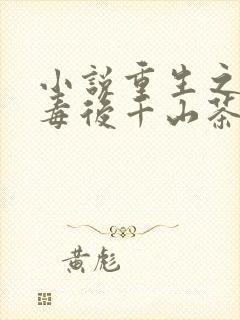 小説重生之
毒後千山茶
黄彪